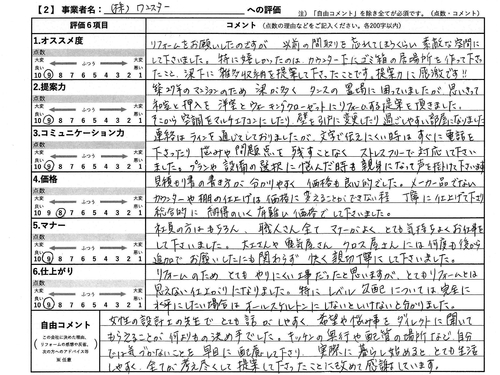 【2】 事業者名: (株)ワンスター への評価
注)「自由コメント」を除き全てが必須です。(点数・コメント)
評価6項目
コメント(点数の理由などをご記入ください。各200字以内)
1.オススメ度
点数
大変良い ふつう 大変悪い
10 9 8 7 6 5 4 3 2 1
リフォームをお願いしたのですが 以前の間取りを忘れてしまうくらい 素敵な空間に
して下さいました。特に嬉しかったのは、カウンター下にゴミ箱の居場所を作って下さっ
たこと、梁下に雑多収納を提案して下さったことです。提案力に感謝です!!
2.提案力
点数
大変良い ふつう 大変悪い
10 9 8 7 6 5 4 3 2 1
のマンションのため 梁が多く タンスの置場に困っていましたが 思いきって
和室と押入を 洋室とウォーキングクローゼットにリフォームする提案を頂きました。
そこから空調をマルチエアコンにしたり 壁を引戸に変更したり過ごしやすい部屋になりました
3.コミュニケーション力
点数
大変良い ふつう 大変悪い
10 9 8 7 6 5 4 3 2 1
連絡はラインを通じてしておりましたが、文字で伝えにくい時は すぐに電話を
下さったり 悩みや問題点を 残すことなく ストレスフリーで対応して下さい
ました。プランや設備の選択に悩んだ時も親身になって声を掛けて下さいます
4.価格
点数
大変良い ふつう 大変悪い
10 9 8 7 6 5 4 3 2 1
見積り書の書き方が 分かりやすく 価格も良心的でした。メーカー品でない
カウンターや棚の仕上げは価格に変えることができない程 丁寧に仕上げて下さり
総合的に 納得のいく有難い価格でして下さいました。
5.マナー
点数
大変良い ふつう 大変悪い
10 9 8 7 6 5 4 3 2 1
社員の方はもちろん、職人さん全て マナーがよく とても気持ちよくお仕事を
して下さいました。大工さんや電気屋さん、クロス屋さんには何度も後から
追加でお願いしたにも関わらず 快く親切丁寧にして下さいました。
6.仕上がり
点数
大変良い ふつう 大変悪い
10 9 8 7 6 5 4 3 2 1
リフォームのため とてもやりにくい工事だったと思いますが、とてもリフォームとは
思えない仕上がりになりました。特にレベル については完全に
水平にしたい場合は オールスケルトンにしないといけないと分かりました。
自由コメント
(この会社に決めた理由、リフォームの感想や反省、次の方へのアドバイス等 ※任意
女性の設計士の先生で とても話がしやすく 希望や悩み事を ダイレクトに聞いて
もらえることが 何よりもの決め手でした。キッチンの奥行や配管の場所など、自分
では気づかないことを 早目に配慮して下さり 実際に暮らし始めると とても生活
しやすく、全てが考え尽くして提案して下さったことに改めて感謝しています。